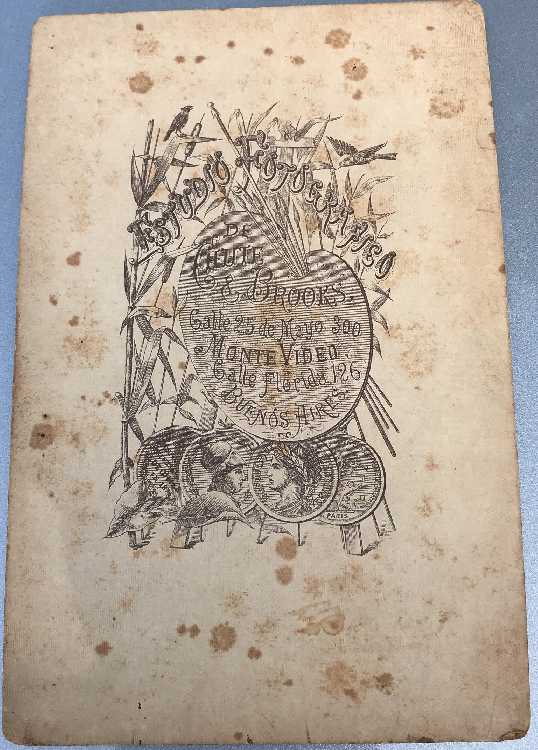 ESTUDIO FOTOGRAFICO
DE
CHUTE
& BROOKS.
Calle 25 de Mayo 300
MONTEVIDEO.
Calle Florida 126
BUENOS AIRES.
PARIS